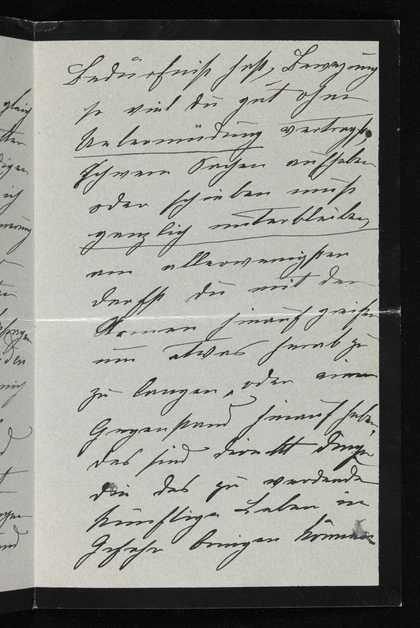 Bedürfniß hast, Bewegung
so viel du gut ohne
Uebermüdung verträgst.
Schwere Sachen aufheben
oder schieben muß
gänzlich unterbleiben,
am allerwenigsten
darfst du mit den
Armen hinauf greifen
um etwas herab zu
zu langen, oder einen
Gegenstand hinauf heben,
das sind direckt Dinge
die das zu werdende
künftige Leben in
Gefahr bringen können